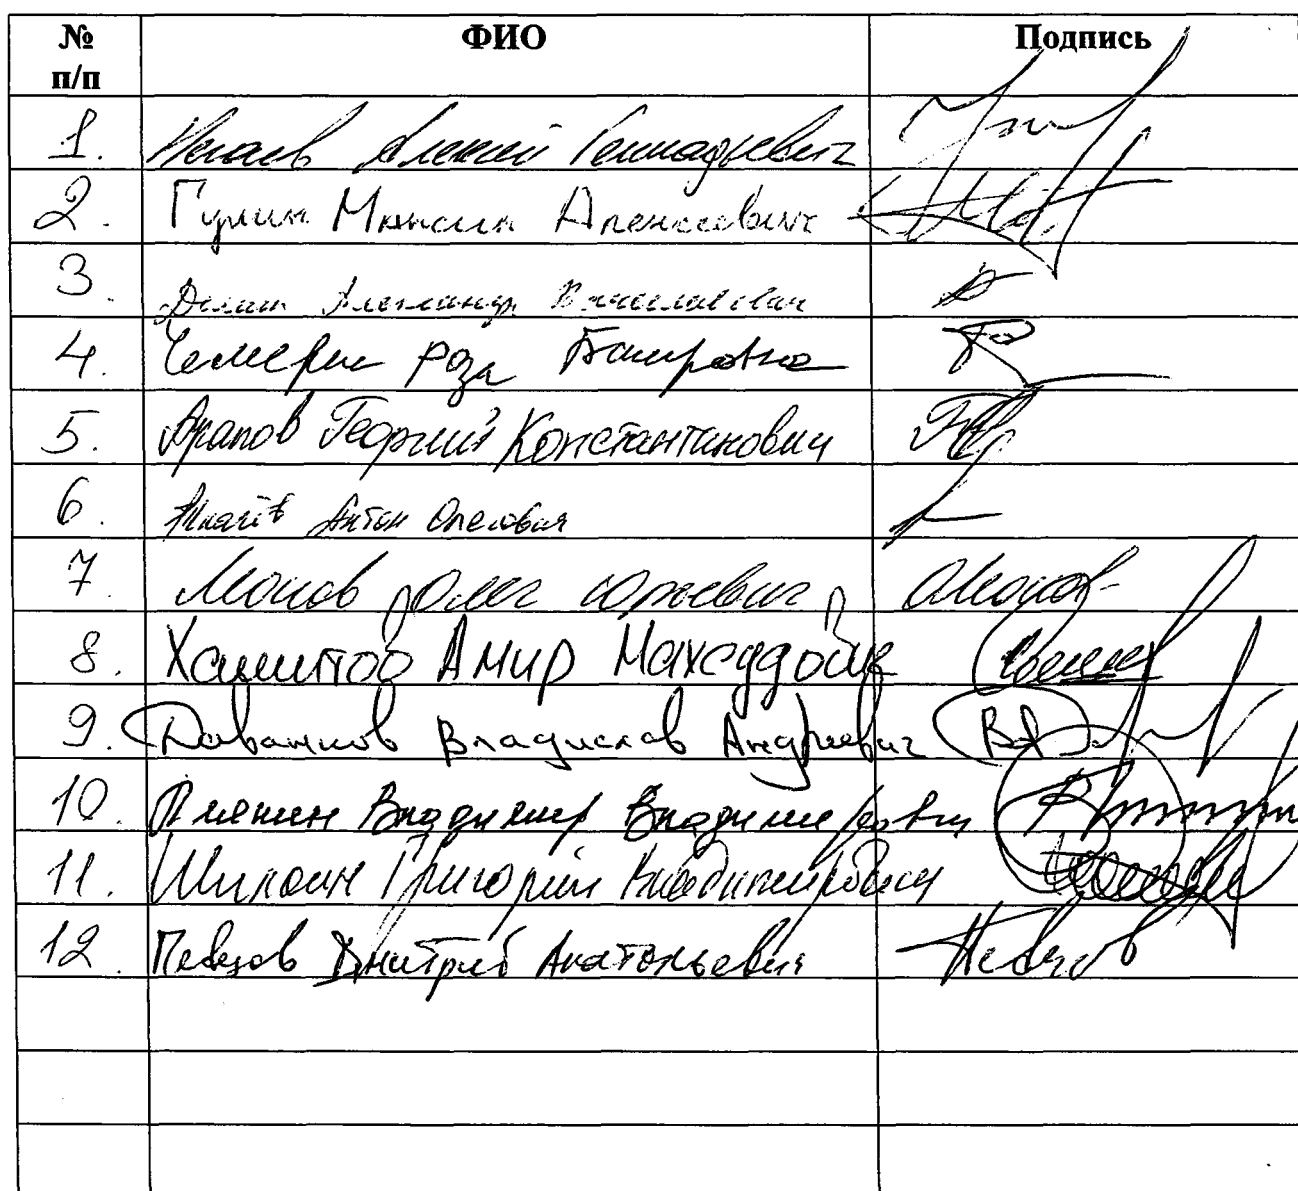 № п/п ФИО Подпись
1. Нечаев Алексей Геннадьевич
2. Гулин Максим Алексеевич
3. Дёмин Александр Вячеславович
4. Чемерис Роза Баировна
5. Арапов Георгий Константинович
6. Ткачёв Антон Олегович
7 Леонов Олег Юрьевич
8. Хамитов Амир Махсудович
9. Даванков Владислав Андреевич
10. Плякин Владимир Владимирович
11. Шилкин Григорий Владимирович
12. Певцов Дмитрий Анатольевич Певцов